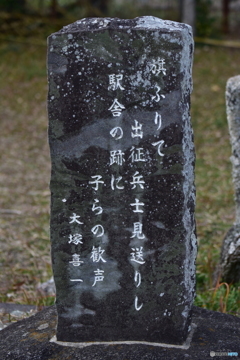 旗ふりて
出征兵士見送りし
駅舎の跡に
子らの歓声
大塚喜一